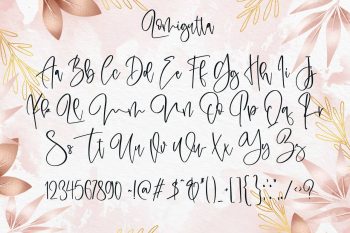 Lomigutta
Aa Bb Cc Dd Ee Ff Gg Hh Ii Jj
Kk Ll Mm Nn Oo Pp Qq Rr
Ss Tt Uu Vv Ww Xx Yy Zz
1234567890 !@# $^&*()_-[]{}:;",./<>?